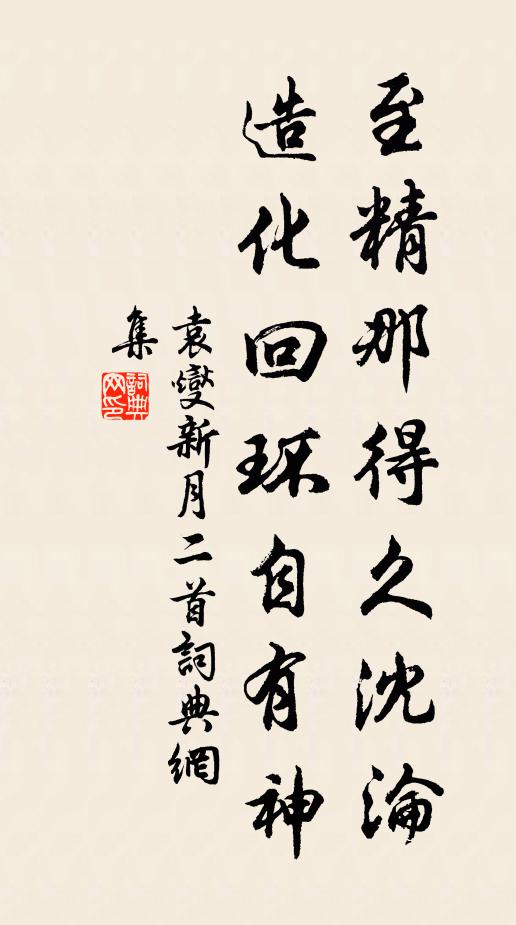 至精那得久沈淪
造化回环自有神
袁燮新月二首詞典網
集
詞典
网印